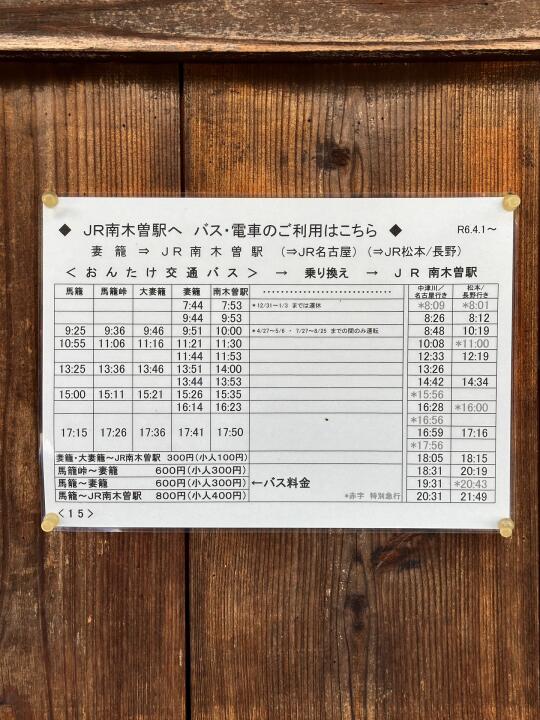 ◆ JR南木曽駅へ バス・電車のご利用はこちら ◆ R6.4.1～
妻籠 ⇒ JR南木曽駅 (⇒JR名古屋) (⇒JR松本/長野)
＜おんたけ交通バス＞ → 乗り換え → JR 南木曽駅
馬籠 馬籠峠 大妻籠 妻籠 南木曽駅 ････････････････････････････ 中津川／名古屋行き 松本/長野行き
7:44 7:53 *12/31～1/3 までは運休 *8:09 *8:01
9:44 9:53 8:26 8:12
9:25 9:36 9:46 9:51 10:00 *4/27～5/6 ・ 7/27～8/25 までの間のみ運転 8:48 10:19
10:55 11:06 11:16 11:21 11:30 10:08 *11:00
11:44 11:53 12:33 12:19
13:25 13:36 13:46 13:51 14:00 13:26
13:44 13:53 14:42 14:34
15:00 15:11 15:21 15:26 15:35 *15:56
16:14 16:23 16:28 *16:00
*16:56
17:15 17:26 17:36 17:41 17:50 16:59 17:16
*17:56
妻籠・大妻籠～JR南木曽駅 300円(小人100円) 18:05 18:15
馬籠峠～妻籠 600円(小人300円) 18:31 20:19
馬籠～妻籠 600円(小人300円) ←バス料金 19:31 *20:43
馬籠～JR南木曽駅 800円(小人400円) *赤字 特別急行 20:31 21:49
＜15＞